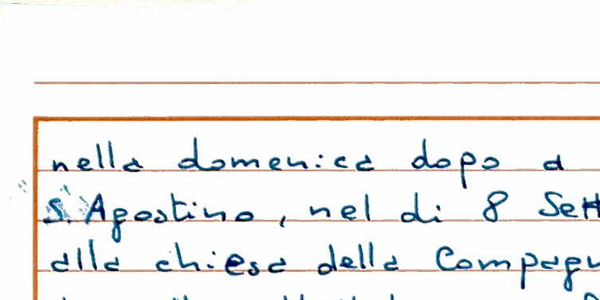 nella domenica dopo a
S. Agostino, nel di 8 Sett
alla chiesa della Compagn